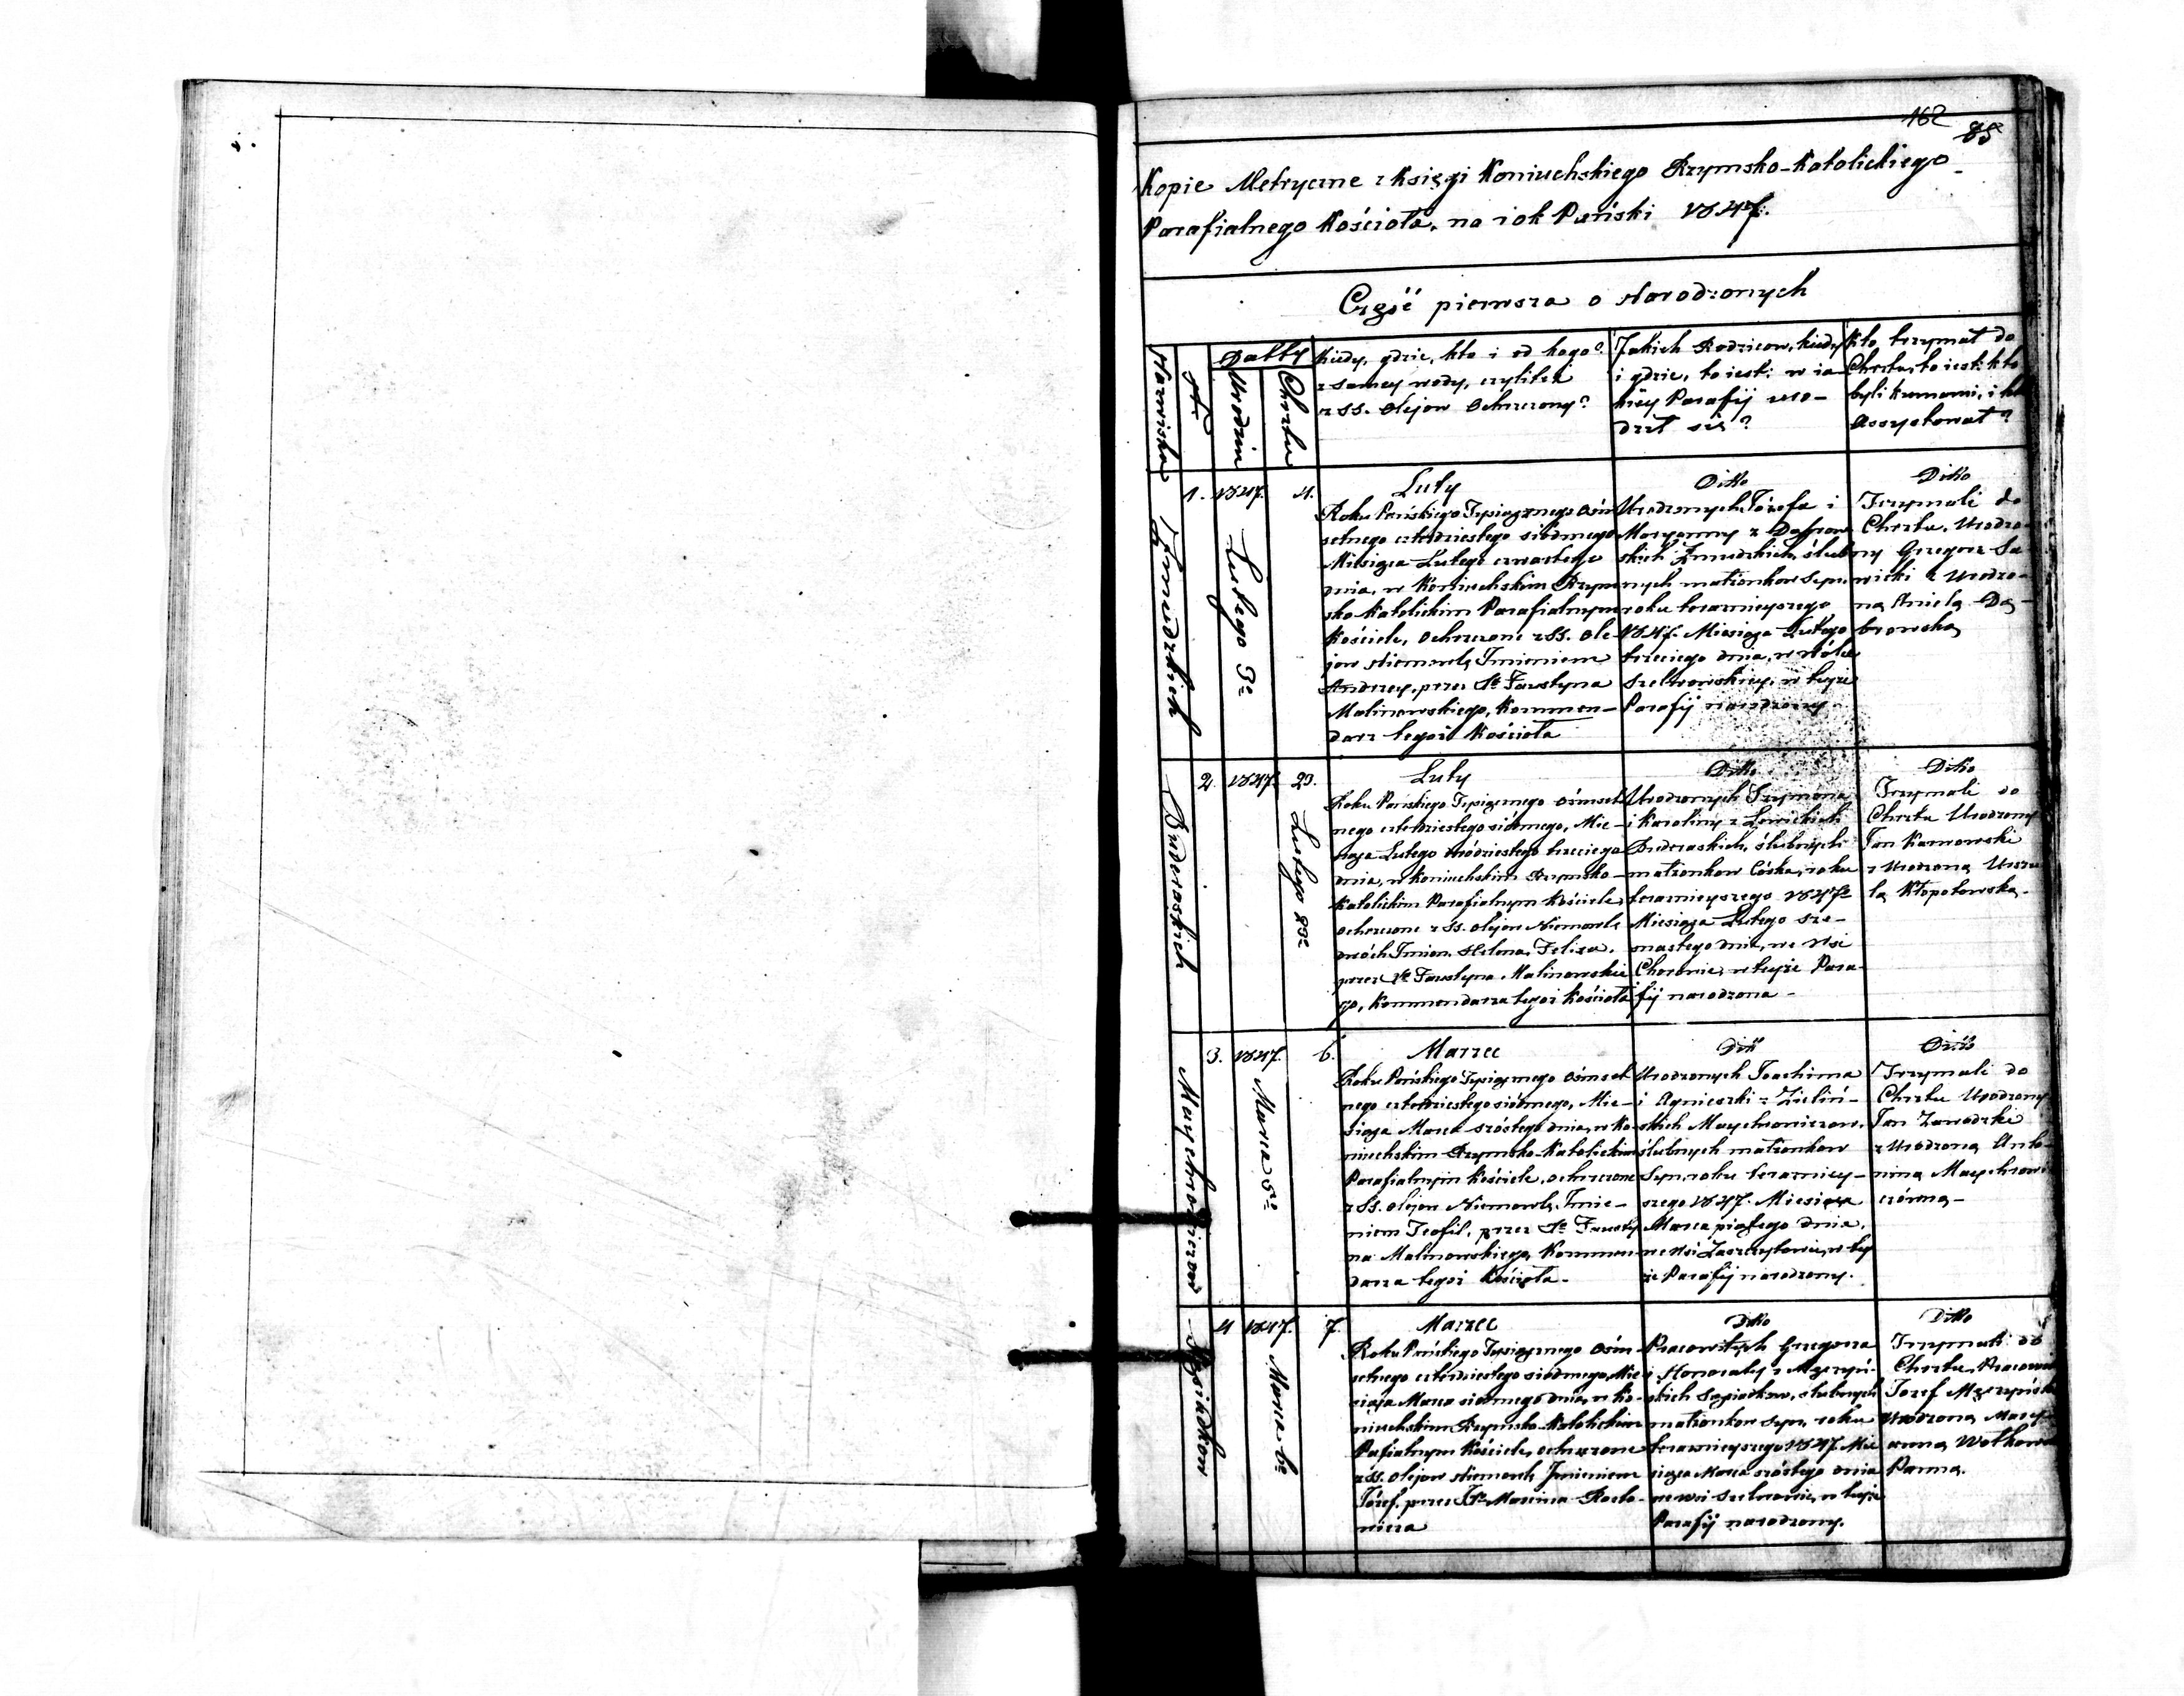 162
85
Kopie Metryczne z Księgi Koniuchskiego Rzymsko-Katolickiego
Parafialnego Kościoła, na rok Pański 1847.
Część pierwsza o Narodzonych
Nazwiska
N
Datty
Urodzin
Chrztu
Kiedy, gdzie, kto i od kogo?
z samey wody, czyli też
z SS. Olejow Ochrzczony?
Jakich Rodzicow, kiedy
i gdzie, to iest: w ia-
kiey Parafij uro-
dził się?
Kto trzymał do
Chrztu, to iest: kto
byli kumami, i kto
Assystował?
Żmudzkich
1.
1847.
Lutego 3
4.
Luty
Roku Pańskiego Tysiącznego Ośm
setnego czterdziestego siódmego
Miesiąca Lutego czwartego
dnia, w Koniuchskim Rzym
sko Katolickim Parafialnym
Kościele, Ochrzczone z SS. Ole-
jow Niemowlę Imieniem
Andrzey, przez Faustyna
Malinowskiego, Kommen-
darz tegoż Kościoła
Ditto
Urodzonych Józefa i
Maryanny z Dąbrow
skich Żmudzkich, ślub
nych małżonkow Syn,
roku teraznieyszego
1847. Miesiąca Lutego
trzeciego dnia, w
w teyże
Parafij narodzony.
Ditto
Trzymali do
Chrztu, Urodzo
ny Grzegorz Sa
wicki z Urodzo-
ną Anielą Dą-
browską
2.
1847.
23.
Lutego
Luty
Roku Pańskiego Tysiącznego Ośmset
nego czterdziestego siódmego, Mie-
siąca Lutego dwódziestego trzeciego
dnia, w Koniuchskim Rzymsko-
Katolickim Parafialnym Kościele,
ochrzczone z SS. olejow Niemowlę
dwóch Imion Helena Felixa.
przez Faustyna Malinowskie
go, Kommendarza tegoż Kościoła
Ditto
Urodzonych Szymona
i Karoliny z Lewickich
ślubnych
małżonkow Córka, roku
teraznieyszego 1847
Miesiąca Lutego
dnia, we Wsi
w teyże Para-
fij narodzona -
Ditto
Trzymali do
Chrztu Urodzony
Jan Karnowski
z Urodzoną Urszu
lą Kłopotowską.
3.
1847.
Marca 5
6.
Marzec
Roku Pańskiego Tysiącznego Ośmset
nego czterdziestego siódmego, Mie-
siąca Marca szóstego dnia, w Ko-
niuchskim Rzymsko-Katolickim
Parafialnym Kościele, ochrzczone
z SS. olejow Niemowlę Imie-
niem Teofil, przez Fausty
na Malinowskiego, Kommen
darza tegoż Kościoła.
Ditto
Urodzonych Joachima
i Agnieszki z Zieliń-
skich
ślubnych małżonkow
Syn, roku terazniey-
szego 1847. Miesiąca
Marca piątego dnia,
we Wsi w tey
że Parafij narodzony.
Ditto
Trzymali do
Chrztu Urodzony
Jan Zawadzki
z Urodzoną Anto
niną
4
1847.
Marca 6
7.
Marzec
Roku Pańskiego Tysiącznego Ośm
setnego czterdziestego siódmego, Mie
siąca Marca siódmego dnia, w Ko-
niuchskim Rzymsko-Katolickim
Pafialnym Kościele, ochrzczone
z SS. olejow Niemowlę Imieniem
Józef, przez Marcina
Ditto
Pracowitych Grzegorza
i Honoraty z
skich ślubnych
małżonkow syn, roku
teraznieyszego 1847. Mie
siąca Marca szóstego dnia
we wsi w teyże
Parafij narodzony.
Ditto
Trzymali do
Chrztu, Pracowi
Jozef
Urodzoną Mary
anną
Panną.